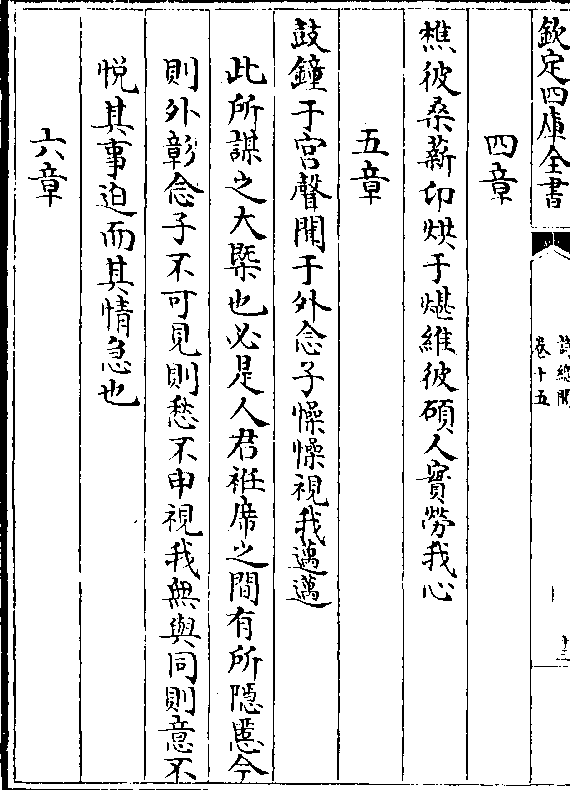 欽定四庫全書
詩總聞
卷十五
十三
四章
樵彼桑薪卬烘于煁維彼碩人實勞我心
五章
鼓鐘于宮聲聞于外念子懆懆視我邁邁
此所謀之大槩也必是人君袵席之間有所隱慝今
則外彰念子不可見則愁不申視我無與同則意不
悦其事迫而其情急也
六章